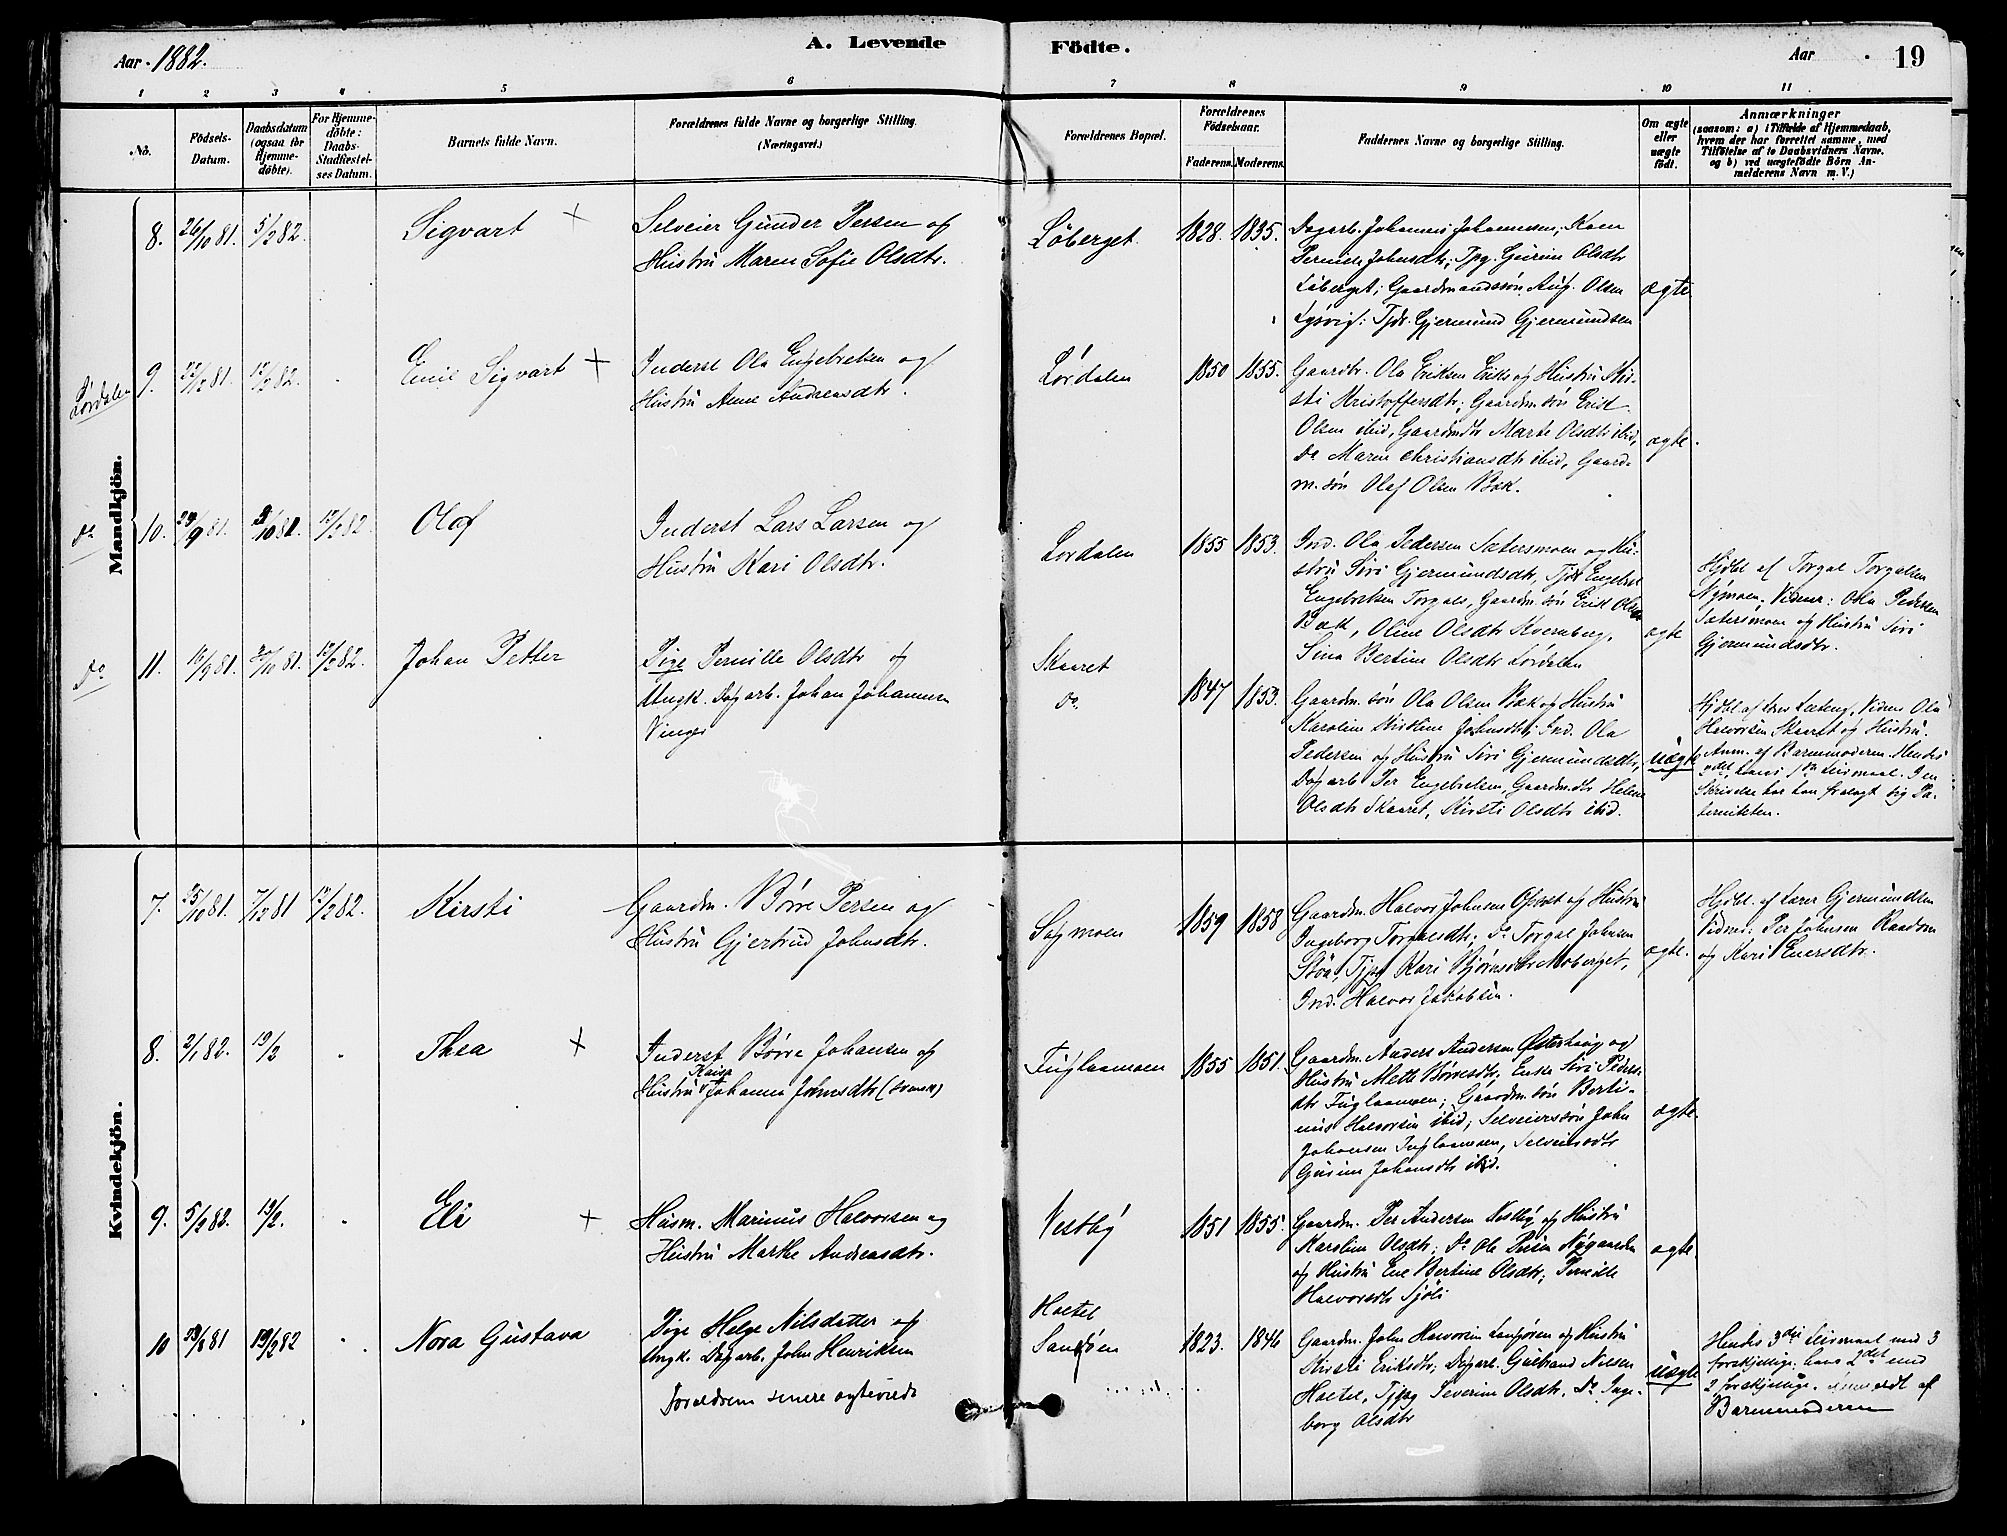 Aar 1882.
A. Levende Födte.
Aar
19
1 2 3 4 5 6 7 8 9 10 11
No.
Födsels-Datum.
Daabsdatum (ogsaa for Hjemme-döbte).
For Hjemme-döbte: Daabs-Stadfæstel-ses Datum.
Barnets fulde Navn.
Forældrenes fulde Navne og borgerlige Stilling. (Næringsvei.)
Forældrenes Bopæl.
Forældrenes Födselsaar.
Faderens. Moderens.
Faddernes Navne og borgerlige Stilling.
Om ægte eller uægte födt.
Anmærkninger
(saasom: a) i Tilfælde af Hjemmedaab, hvem der har forrettet samme, med Tilföielse af to Daabsvidners Navne. og b) ved uægtefödte Börn An-melderens Navn m. V.)
Mandkjön.
8. 26/10 81. 5/2 82. Sigvart
Selveier Gunder Persen og
Hustru Maren Sofie Olsdtr.
Löberget. 1828. 1835.
Dagarb. Johannes Johannesen, Kone
Pernele Johnsdtr; Tpg. Gurine Olsdtr
Löberget; Gaardmandssön Aug. Olsen
Lysvig; Tjdr. Gjermund Gjermundsen
ægte
Lördalen
9. 12/2 82. Emil Sigvart
Inderst Ola Engebretsen og
Hustru Anne Andreasdtr.
Lördalen 1850 1855.
Gaardbr. Ola Eriksen og Hustru Kir-
sti Kristoffersdtr; Gaardm. sön Erik
Olsen ibid, Gaardmdtr Marte Olsdtr ibid,
Do Maren Christiansdtr ibid, Gaard-
m. sön Olaf Olsen Bæk.
ægte.
do
10. 29/9 81. 12/2 82. Olaf
Inderst Lars Larsen og
Hustru Kari Olsdtr.
Lördalen 1855 1853.
Ind. Ola Pedersen Sætersmoen og Hu-
stru Siri Gjermundsdtr, Tjdr Engebret
Engebretsen Torgals, Gaardm. sön Erik Olsen
Bæk, Oline Olsdtr Kvernberg,
Sina Bertine Olsdtr Lördalen
ægte
Hjdbt af Torgal Torgalsen
Nymoen, Vidner: Ola Pedersen
Sætersmoen og Hustru Siri
Gjermundsdtr.
Do
11. 12/2 82. Johan Petter
Pige Pernille Olsdtr og
Ungk. Dagarb. Johan Johannesen
Vinger
Skaaret
do. 1847 1853.
Gaardm. sön Ola Olsen Bæk og Hustru
Karoline Johnsdtr, Ind. Ola
Pedersen og Hustru Siri Gjermundsdtr,
Dagarb Per Engebretsen, Gaardmdtr Helene
Olsdtr Skaaret, Kirsti Olsdtr ibid.
uægte
Hjdbt af Lars Vidner Ola
Halvorsen Skaaret og Hustru.
Anm. af Barnemoderen. Hendes
2det, hans 1ste Leiermaal. I en
Skrivelse har han fralagt sig Pa-
terniteten.
Kvindekjön.
7. 25/10 81. 7/12 81 12/2 82. Kirsti
Gaardm. Börre Persen og
Hustru Gjertrud Johnsdtr.
Sagmoen 1859 1858
Gaardm. Halvor Johnsen og Hustru
Ingeborg Torgalsdtr, Do Torgal Johnsen
Stöa, Tjpg Kari Björnsdtr Moberget,
Ind. Halvor Jakobsen.
ægte.
Hjdbt. af Lærer Gjermundsen
Vidner: Per Johnsen Raadom
og Kari Evensdtr.
8. 2/1 82. 19/2 Thea
Inderst Börre Johansen og
Kaisa
Hustru Johanna Johnsdtr (svensk)
Fuglaamoen 1855 1851.
Gaardm. Anders Andersen Österhaug og
Hustru Mette Börresdtr, Enke Siri Peders-
dtr Fuglaamoen; Gaardm. sön Berti-
nus Halvorsen ibid; Selveierssön John
Johansen Fuglaamoen, Selveiersdtr
Gurine Johansdtr ibid.
ægte.
9. 5/2 82. 19/2. Eli
Husm. Marinus Halvorsen og
Hustru Marthe Andreasdtr.
Vestby 1851 1855.
Gaardm. Per Andersen Vestby og Hustru
Karoline Olsdtr; Do Ole Persen Nygaarden
og Hustru Ene Bertine Olsdtr; Pernille
Halvorsdtr Sjöli
ægte.
10 19/2 82 Nora Gustava
Pige Helge Nilsdatter og
Ungk. Dagarb. John Henriksen
Forældrene senere ægteviede
Holtet
1823. 1846
Gaardm. John Halvorsen og Hustru
Kirsti Eriksdtr; Dagarb. Gulbrand Nilsen
Holtet, Tjpg Severine Olsdtr, Do Inge-
borg Olsdtr
uægte
Hendes 3die Leiermaal med 3
forskjellige; hans 2det med
2 forskjellige. af
Barnemoderen